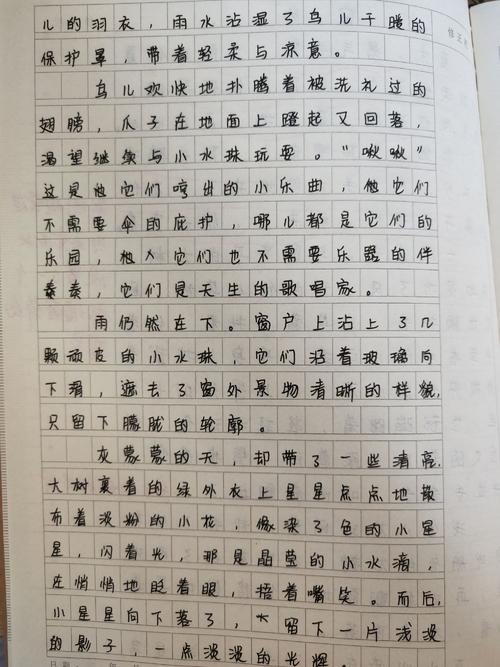 儿的羽衣，雨水沾湿了鸟儿干暖的
保护罩，带着轻柔与凉意。
鸟儿欢快地扑腾着被洗礼过的
翅膀，爪子在地面上蹬起又回落，
渴望继续与小水珠玩耍。“啾啾”
这是他它们哼出的小乐曲，他它们
不需要伞的庇护，哪儿都是它们的
乐园，他人它们也不需要乐器的伴
奏奏，它们是天生的歌唱家。
雨仍然在下。窗户上沾上了几
颗顽皮的小水珠，它们沿着玻璃向
下滑，遮去了窗外景物清晰的样貌，
只留下朦胧的轮廓。
灰蒙蒙的天，却带了一些清亮，
大树裹着的绿外衣上星星点点地散
布着淡粉的小花，像染了色的小星
星，闪着光，那是晶莹的小水滴，
在悄悄地眨着眼，捂着嘴笑。而后，
小星星向下落了，留下一片浅淡
的影子，一点淡淡的光辉。